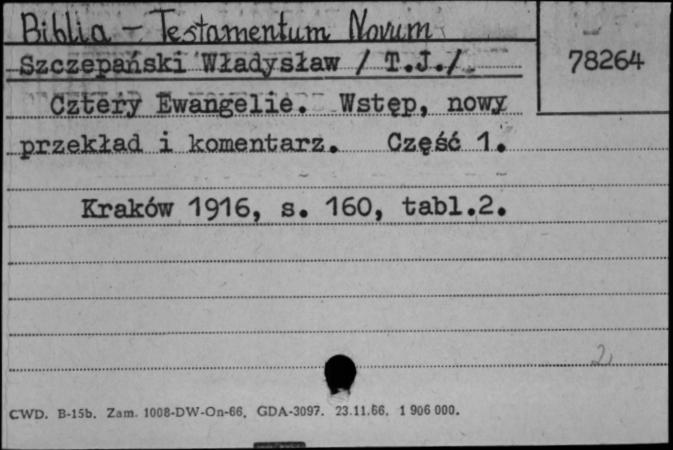 Biblia - Testamentum Novum
Szczepański Władysław / T.J./
78264
Cztery Ewangelie. Wstęp, nowy
przekład i komentarz. Część 1.
Kraków 1916, s. 160, tabl.2.
2
CWD. B-15b. Zam. 1008-DW-On-66. GDA-3097. 23.11.66. 1 906 000.